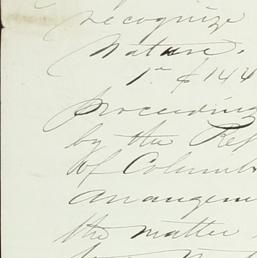 recognize
Nature.
1st $144
proceeding
by the Rep
of Columb
arrangem
the matter